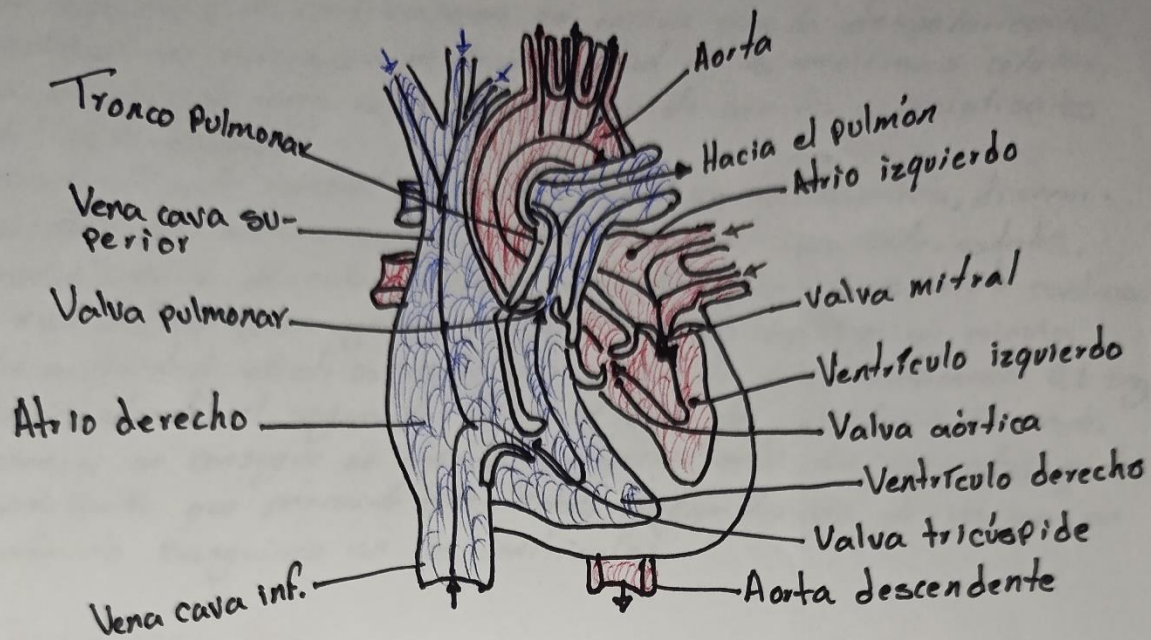 Tronco pulmonar
Vena cava su-
perior
Valva pulmonar
Atrio derecho
Vena cava inf.
Aorta
Hacia el pulmón
Atrio izquierdo
Valva mitral
Ventrículo izquierdo
Valva aórtica
Ventrículo derecho
Valva tricúspide
Aorta descendente